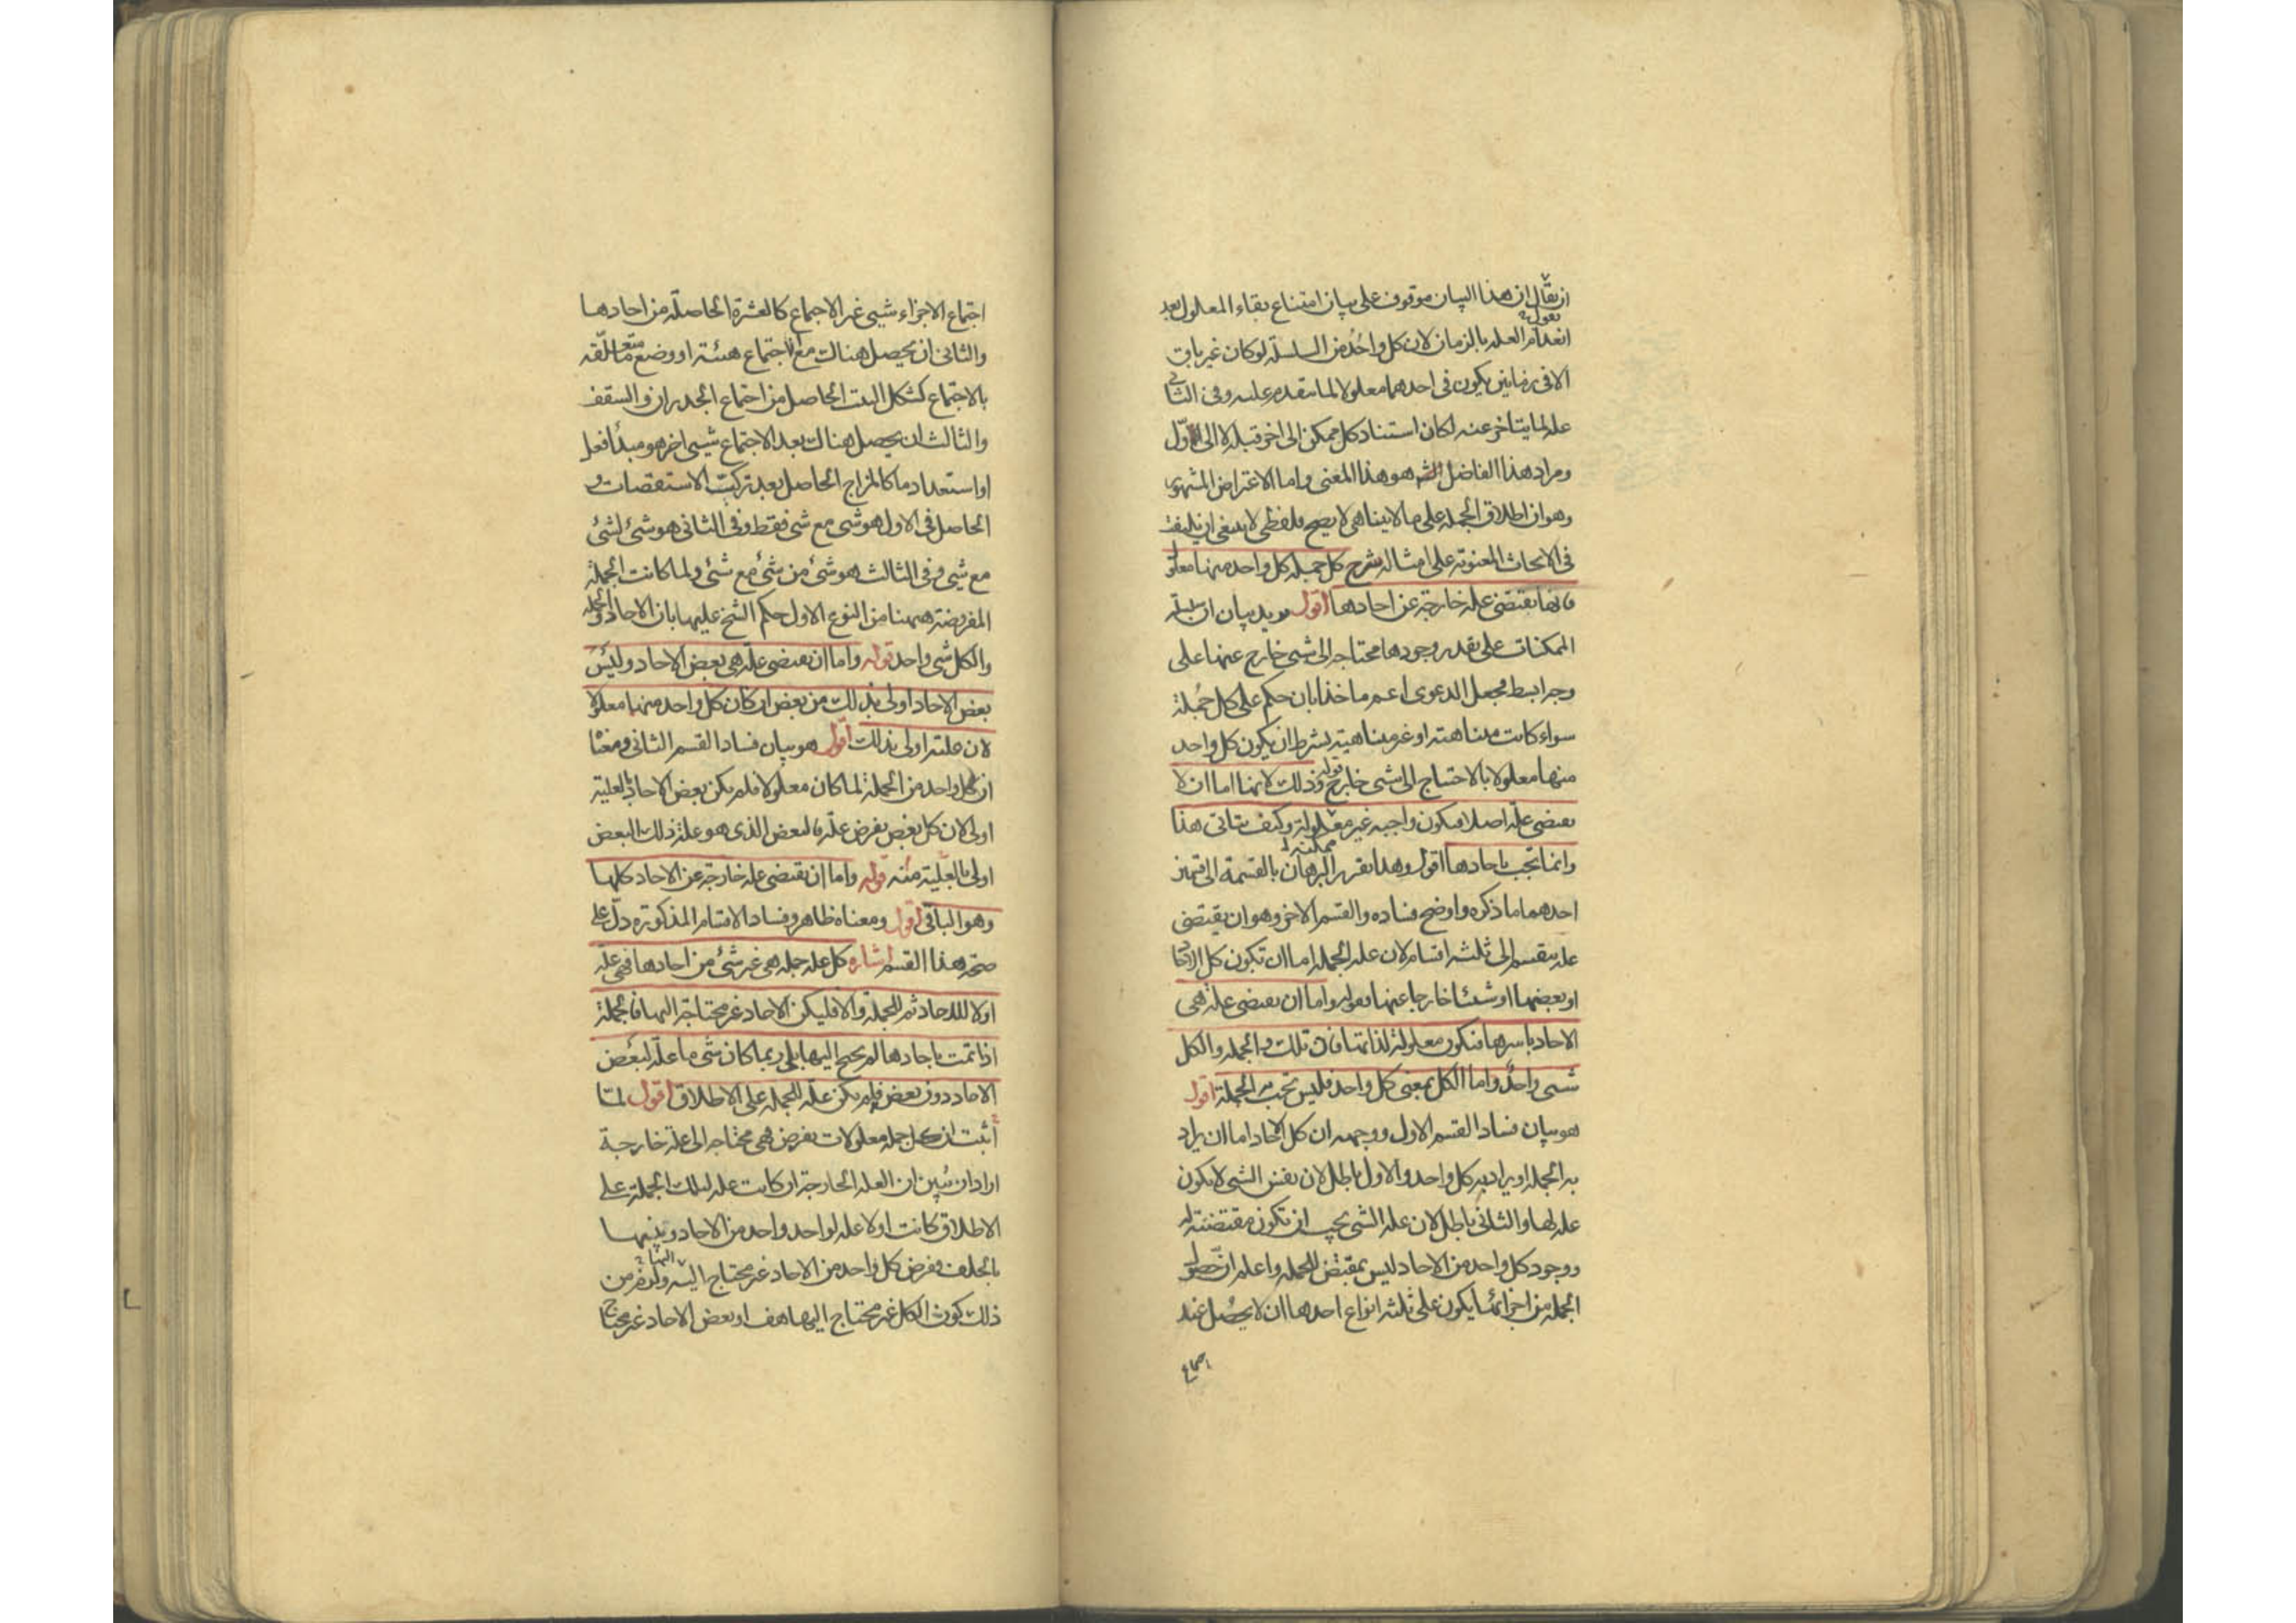 ان يقال ان هذا البيان موقوف على بيان امتناع بقاء المعلول بعد
يقول
انعدام العله بالزمان لان كل واحد من السلسلة لو كان غير باق
الا في زمانين يكون في احدهما معلولا لما يتقدم عليه وفي الثاني
علة لما يتاخر عنه لكان استناد كل ممكن الى اخر قبله لا الى اول
ومراد هذا الفاضل الش هو هذا المعنى واما الاعتراض المشهور
وهو ان اطلاق الجملة على ما لا يتناهى لا يصح فلفظي لا ينبغي ان يلتفت
في الابحاث المعنوية على امثاله شرح كل جمله كل واحد منها معلول
فانها يقتضى علة خارجة عن احادها اقول يريد بيان ان سلسلة
الممكنات على تقدير وجودها محتاجه الى شئ خارج عنها على
وجه ابسط فجعل الدعوى اعم ماخذا بان حكم على كل جملة
سواء كانت متناهية او غير متناهية بشرط ان يكون كل واحد
منها معلولا بالاحتياج الى شئ خارج قوله وذلك لانها اما ان لا
يقتضى علة اصلا فيكون واجبه غير معلولة وكيف يتاتى هذا
ممكنه
وانما تجب باحادها اقول وهذا تقرير البرهان بالقسمة الى قسمين
احدهما ما ذكره واوضح فساده والقسم الاخر وهو ان يقتضى
علة ينقسم الى ثلثه اقسام لان علة الجملة اما ان تكون كل الاحاد
او بعضها او شيئا خارجا عنها قوله واما ان يقتضى علة هى
الاحاد باسرها فتكون معلولة لذاتها فان تلك والجمله والكل
شئ واحد واما الكل بمعنى كل واحد فليس تجب به الجملة اقول
هو بيان فساد القسم الاول ووجهه ان كل الاحاد اما ان يراد
به الجملة او يراد به كل واحد والاول باطل لان نفس الشئ لا يكون
علة لها والثاني باطل لان علة الشئ يجب ان تكون مقتضية له
ووجود كل واحد من الاحاد ليس بمقتض للجملة واعلم ان حصول
الجملة من اجزائها يكون على ثلثه انواع احدها ان لا يحصل عند
اجتماع
اجتماع الاجزاء شيئ غير الاجتماع كالعشرة الحاصلة من احادها
والثاني ان يحصل هناك مع الاجتماع هيئة او وضع ما متعلقه
بالاجتماع كشكل البيت الحاصل من اجتماع الجدران والسقف
والثالث ان يحصل هناك بعد الاجتماع شيئ اخر هو مبدأ فعل
او استعداد ما كالمزاج الحاصل بعد تركب الاستقصات و
الحاصل في الاول هو شئ مع شئ فقط وفي الثاني هو شئ لشئ
مع شئ وفي الثالث هو شئ من شئ مع شئ ولما كانت الجملة
المفروضة ههنا من النوع الاول حكم الشيخ عليها بان الاحاد والجمله
والكل شئ واحد قوله واما ان يقتضى علة هى بعض الاحاد وليس
بعض الاحاد اولى بذلك من بعض ان كان كل واحد منها معلولا
لان علته اولى بذلك اقول هو بيان فساد القسم الثاني ومعناه
ان كل واحد من الجملة لما كان معلولا فلم يكن بعض الاحاد بالعلية
اولى لان كل بعض يفرض علة فالبعض الذى هو علة ذلك البعض
اولى بالعلية منه قوله واما ان يقتضى علة خارجة عن الاحاد كلها
وهو الباقى اقول ومعناه ظاهر وفساد الاقسام المذكورة دل على
صحة هذا القسم اشاره كل علة جملة هى غير شئ من احادها فهى علة
اولا للاحاد ثم للجملة والا فليكن الاحاد غير محتاجة اليها فالجملة
اذا تمت باحادها لم يحتج اليها بلى ربما كان شئ ما علة لبعض
الاحاد دون بعض فلم يكن علة للجملة على الاطلاق اقول لما
اثبت ان كل جمله معلولات يفرض فهى محتاجه الى علة خارجة
اراد ان يبين ان العلة الخارجة ان كانت علة لتلك الجملة على
الاطلاق كانت اولا علة لواحد واحد من الاحاد وبينها
بالخلف وفرض كل واحد من الاحاد غير محتاج اليه ولزم من
اليها
ذلك كون الكل غير محتاج اليها هف او بعض الاحاد غير محتاج